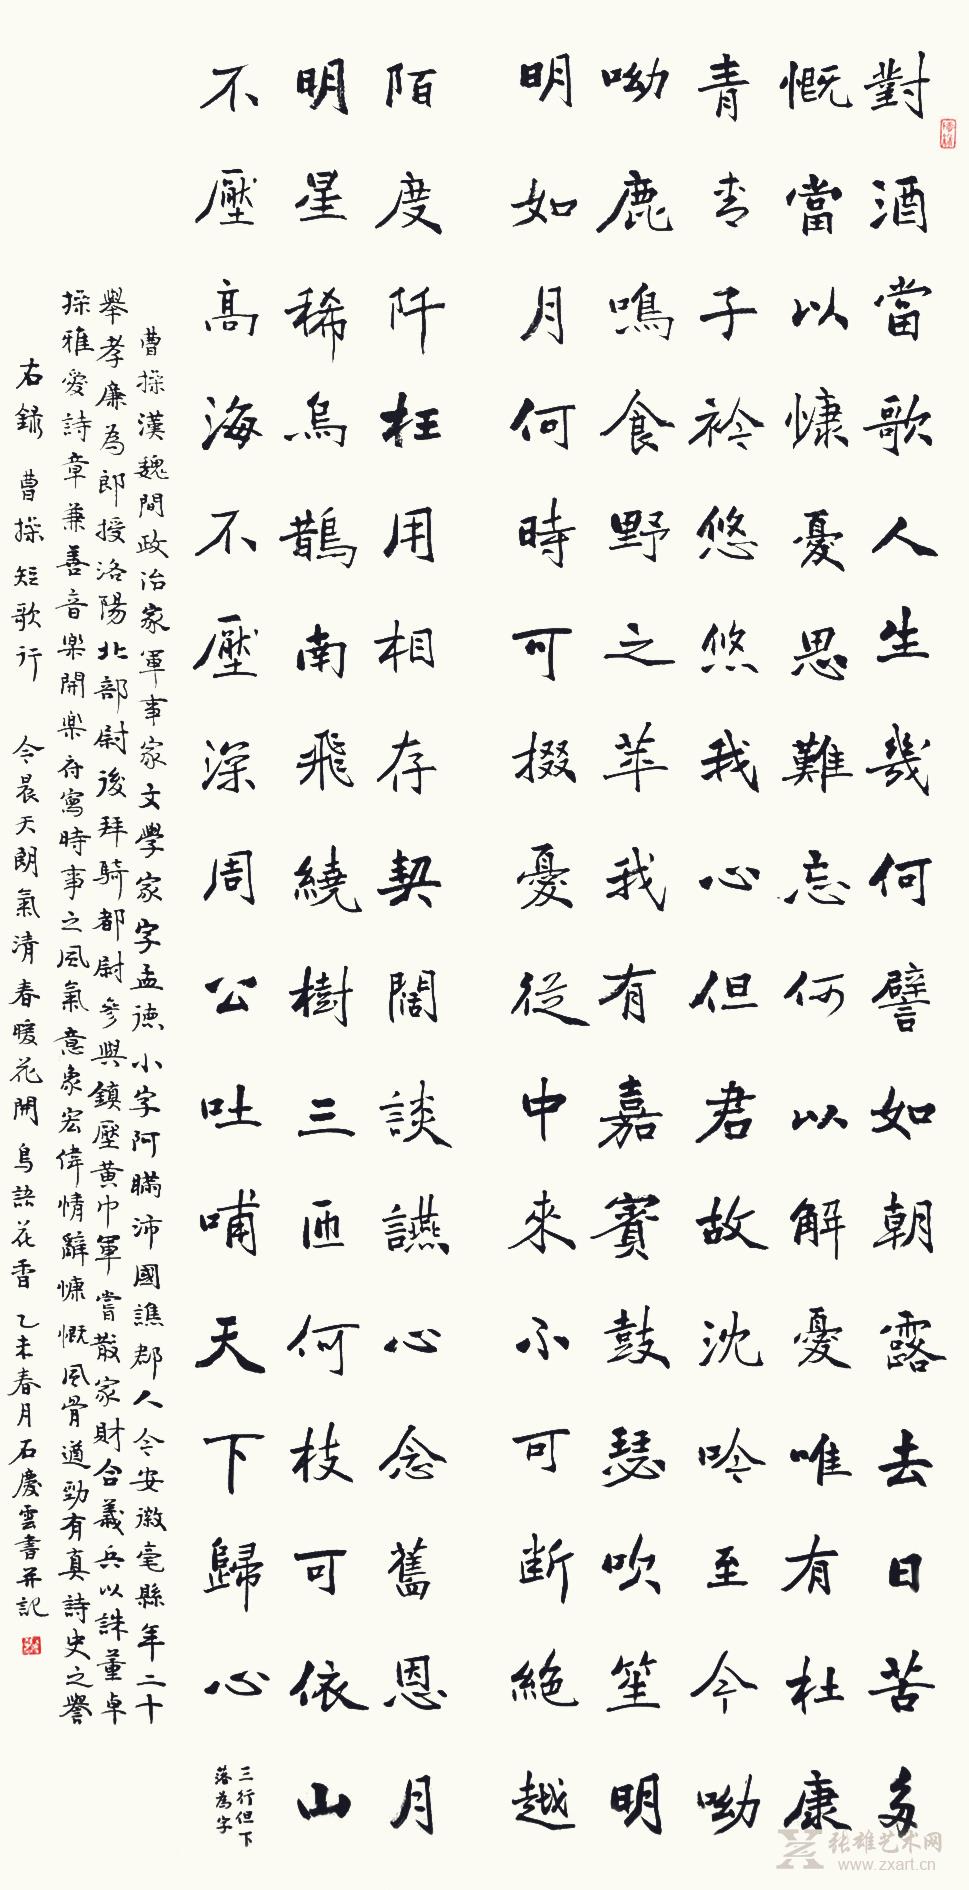 對酒當歌人生幾何譬如朝露去日苦多
慨當以慷憂思難忘何以解憂唯有杜康
青青子衿悠悠我心但君故沈吟至今呦
呦鹿鳴食野之苹我有嘉賓鼓瑟吹笙明
明如月何時可掇憂從中來不可斷絕越
陌度阡枉用相存契闊談讌心念舊恩月
明星稀烏鵲南飛繞樹三匝何枝可依山
不壓高海不壓深周公吐哺天下歸心
三行但下
落為字
曹操漢魏間政治家軍事家文學家字孟德小字阿瞞沛國譙郡人今安徽亳縣年二十
舉孝廉為郎授洛陽北部尉後拜騎都尉參與鎮壓黃巾軍嘗散家財合義兵以誅董卓
操雅愛詩章兼善音樂開樂府寫時事之風氣意象宏偉情辭慷慨風骨遒勁有真詩史之譽
右錄 曹操短歌行 今晨天朗氣清春暖花開鳥語花香乙未春月石慶雲書并記
张雄艺术网
www.zxart.cn